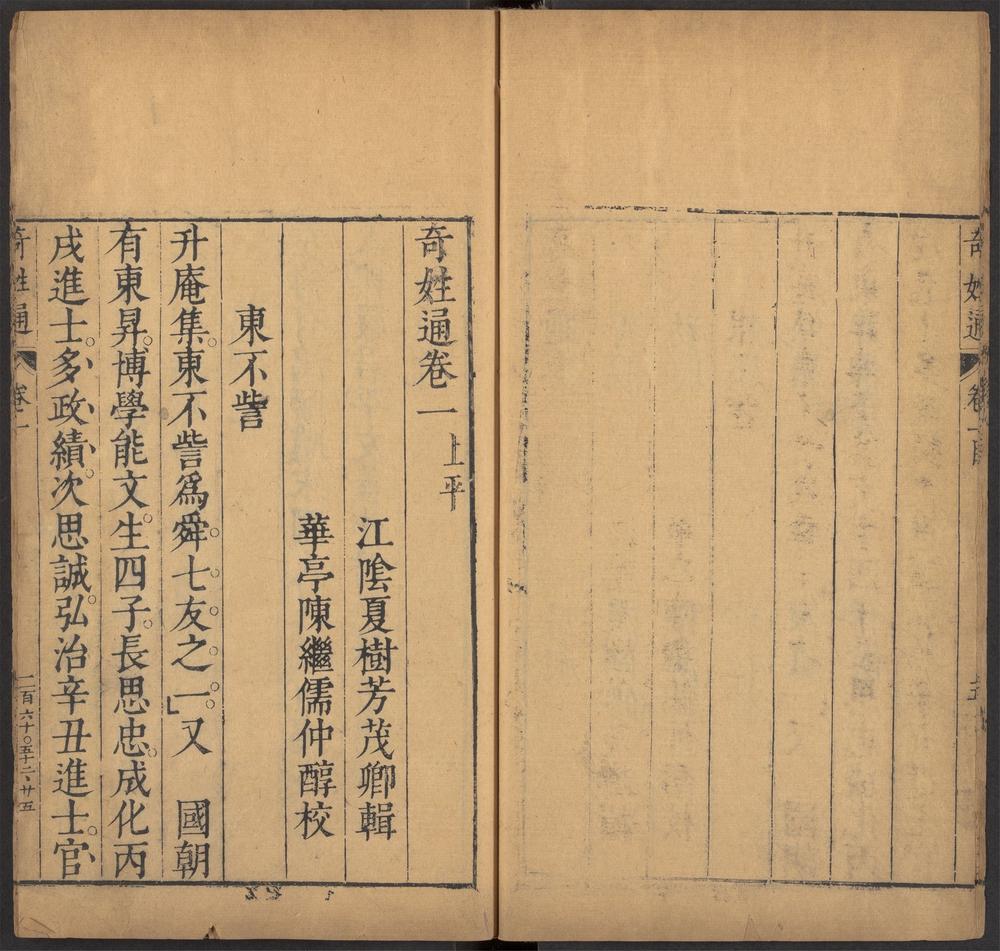 奇姓通
奇姓通卷一 上平
江陰夏樹芳茂卿輯
華亭陳繼儒仲醇校
東不訾
升庵集。東不訾爲舜七友之一。」又 國朝
有東昇。博學能文。生四子。長思忠。成化丙
戌進士。多政績。次思誠。弘治辛丑進士。官
奇姓通 卷一
二百六十〇五十二、廿五